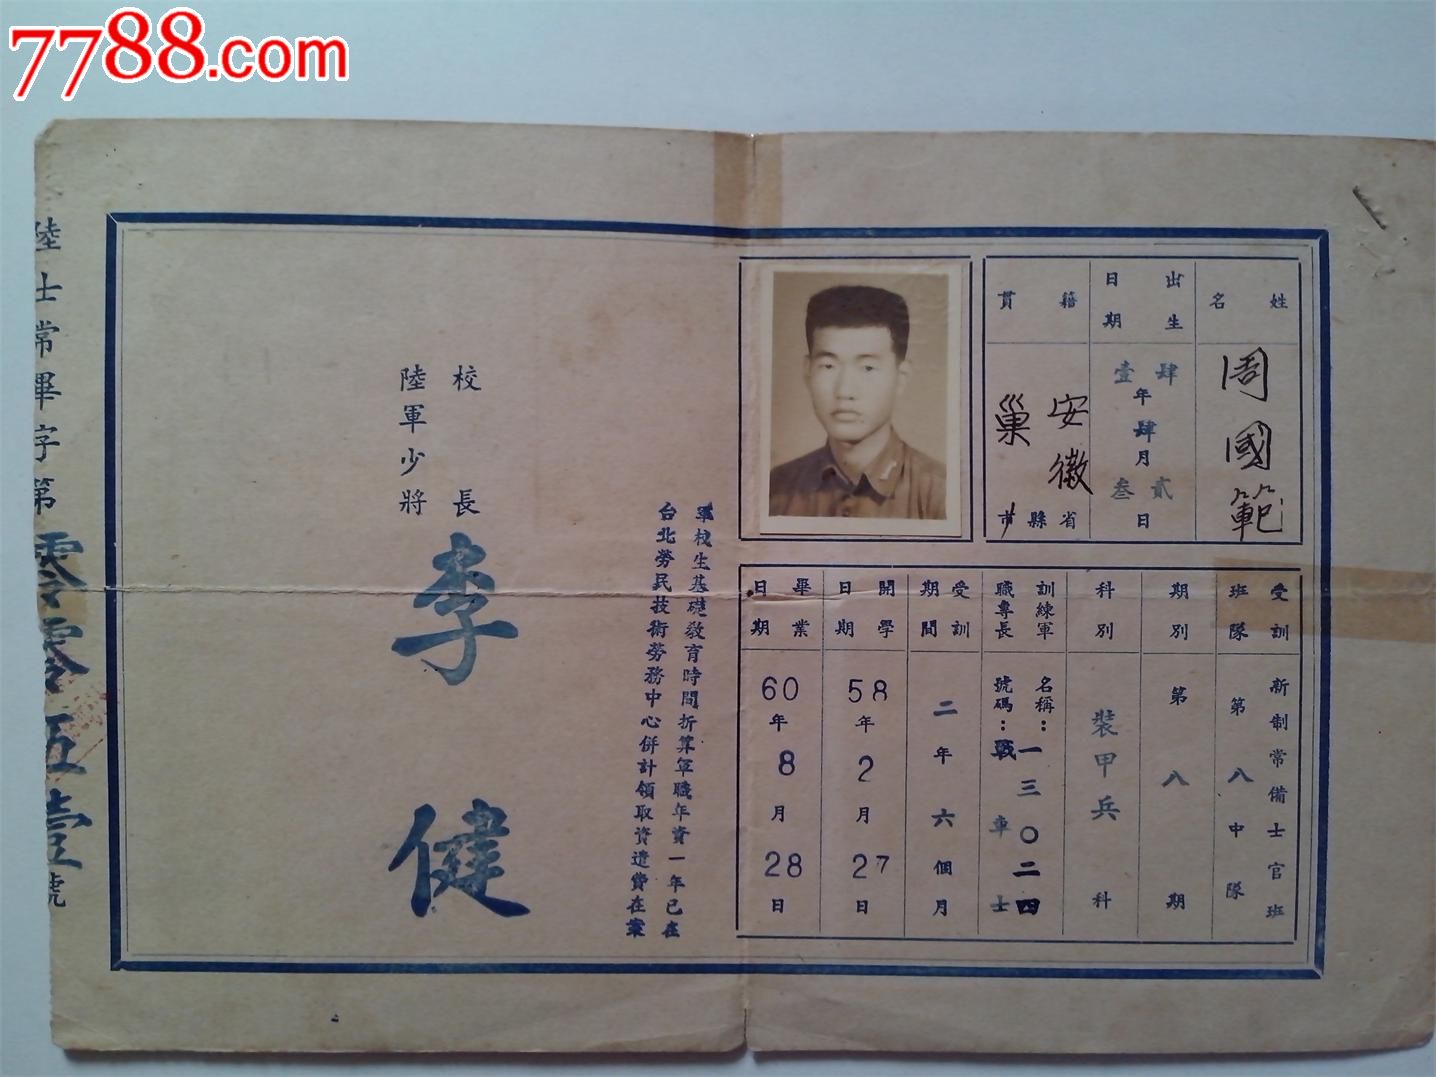 7788.com
姓名
周國範
出生日期
肆壹年肆月貳叁日
籍貫
安徽省
巢縣市
受訓班隊
新制常備士官班
第八中隊
期別
第八期
科別
裝甲兵科
訓練軍職專長
名稱：
一三〇二四
號碼：
戰車士
受訓期間
二年六個月
開學日期
58年2月27日
畢業日期
60年8月28日
軍校生基礎教育時間折算軍職年資一年已在
台北勞民技術勞務中心併計領取資遣費在案
校長
陸軍少將
李健
陸士常畢字第零零伍壹號